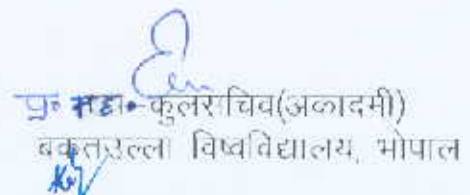 प्र० सहा० कुलसचिव(अकादमी)
बकतउल्ला विष्वविद्यालय, भोपाल